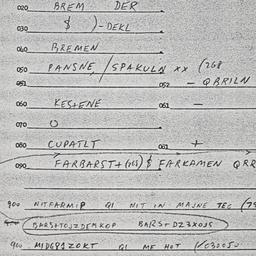 020 BREM DER
030 $ )-DEKL
040 BREMEN
050 PANSNE, / SPAKULN xx (268
051 052 - QRRILN
060 KESTENE 061 -
070 O
080 CUPATLT 081 +
090 FARBARST+(268) $ FARKAMEN QRR
900 NITFARMIP QI NIT IN MAJNE TEG (75
BARSTOJZDEMKOP BARSTDZ3XOJS
900 MIDGRIZOKT QI ME HOT